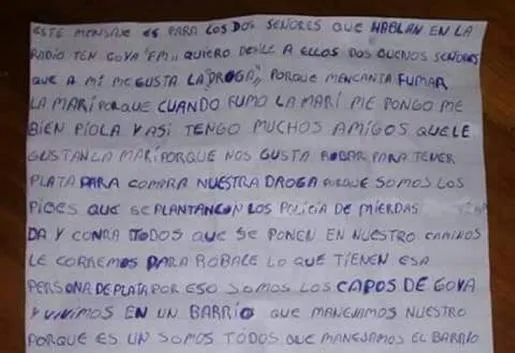 ESTE MENSAJE ES PARA LOS DOS SEÑORES QUE HABLAN EN LA
RADIO TEN GOYA "FM" QUIERO DESILE A ELLOS DOS BUENOS SEÑORES
QUE A MÍ ME GUSTA LA "DROGA", PORQUE MENCANTA FUMAR
LA MARÍ PORQUE CUANDO FUMO LA MARÍ ME PONGO ME
BIEN PIOLA Y ASI TENGO MUCHOS AMIGOS QUE LE
GUSTAN LA MARI PORQUE NOS GUSTA ROBAR PARA TENER
PLATA PARA COMPRA NUESTRA DROGA PORQUE SOMOS LOS
PIBES QUE SE PLANTAN CON LOS POLICIA DE MIERDAS
DA Y CONRA TODOS QUE SE PONEN EN NUESTRO CAMINOS
LE CORREMOS PARA ROBALE LO QUE TIENEN ESA
PERSONA DE PLATA POR ESO SOMOS LOS CAPOS DE GOYA
Y VIVIMOS EN UN BARRÍO QUE MANEJAMOS NUESTRO
PORQUE ES UN SOMOS TODOS QUE MANEJAMOS EL BARRIO